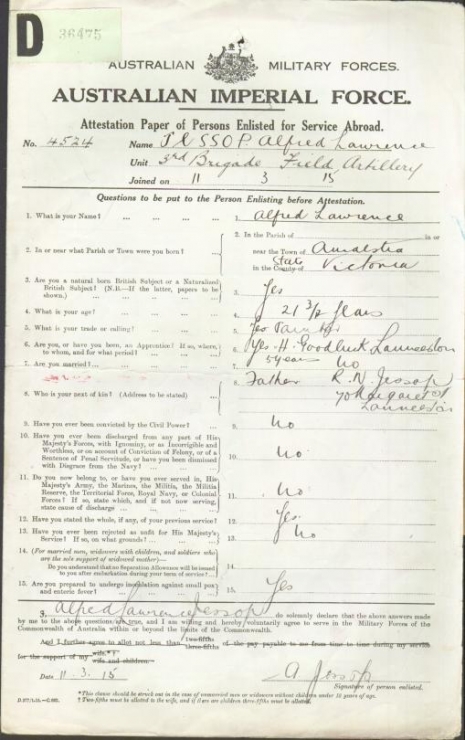 D
36475
AUSTRALIAN MILITARY FORCES.
AUSTRALIAN IMPERIAL FORCE.
Attestation Paper of Persons Enlisted for Service Abroad.
No. 4524 Name JESSOP Alfred Lawrence
Unit 3rd Brigade Field Artillery
Joined on 11 3 15
Questions to be put to the Person Enlisting before Attestation.
1. What is your Name? ... ... ... ... 1. Alfred Lawrence
2. In or near what Parish or Town were you born? ... 2. In the Parish of in or
near the Town of
in the County of State Victoria
3. Are you a natural born British Subject or a Naturalized
British Subject? (N.B.—If the latter, papers to be
shown.) ... ... ... ... 3. Yes
4. What is your age? ... ... ... ... 4. 21 3/12 years
5. What is your trade or calling? ... ... ... 5.
6. Are you, or have you been, an Apprentice? If so, where,
to whom, and for what period? ... ... 6. Yes. H. Goodluck Launceston
5 years
7. Are you married? ... ... ... 7. No
8. Who is your next of kin? (Address to be stated) ... 8. Father R. N. Jessop
70 Margaret St
Launceston
9. Have you ever been convicted by the Civil Power? ... 9. No
10. Have you ever been discharged from any part of His
Majesty's Forces, with Ignominy, or as Incorrigible and
Worthless, or on account of Conviction of Felony, or of a
Sentence of Penal Servitude, or have you been dismissed
with Disgrace from the Navy? ... 10. No.
11. Do you now belong to, or have you ever served in, His
Majesty's Army, the Marines, the Militia, the Militia
Reserve, the Territorial Force, Royal Navy, or Colonial
Forces? If so, state which, and if not now serving,
state cause of discharge ... ... ... 11. No.
12. Have you stated the whole, if any, of your previous service? 12. Yes.
13. Have you ever been rejected as unfit for His Majesty's
Service? If so, on what grounds? ... ... 13. No
14. (For married men, widowers with children, and soldiers who
are the sole support of widowed mother)—
Do you understand that no Separation Allowance will be issued
to you after embarkation during your term of service? ... 14.
15. Are you prepared to undergo inoculation against small pox
and enteric fever? ... ... ... 15. Yes
I, Alfred Lawrence Jessop do solemnly declare that the above answers made
by me to the above questions are true, and I am willing and hereby voluntarily agree to serve in the Military Forces of the
Commonwealth of Australia within or beyond the limits of the Commonwealth.
And I further agree to allot not less than two-fifths three-fifths of the pay payable to me from time to time during my service
for the support of my wife.*† wife and children.
Date 11. 3. 15 A Jessop
Signature of person enlisted.
*This clause should be struck out in the case of unmarried men or widowers without children under 18 years of age.
† Two-fifths must be allotted to the wife, and if there are children three-fifths must be allotted.